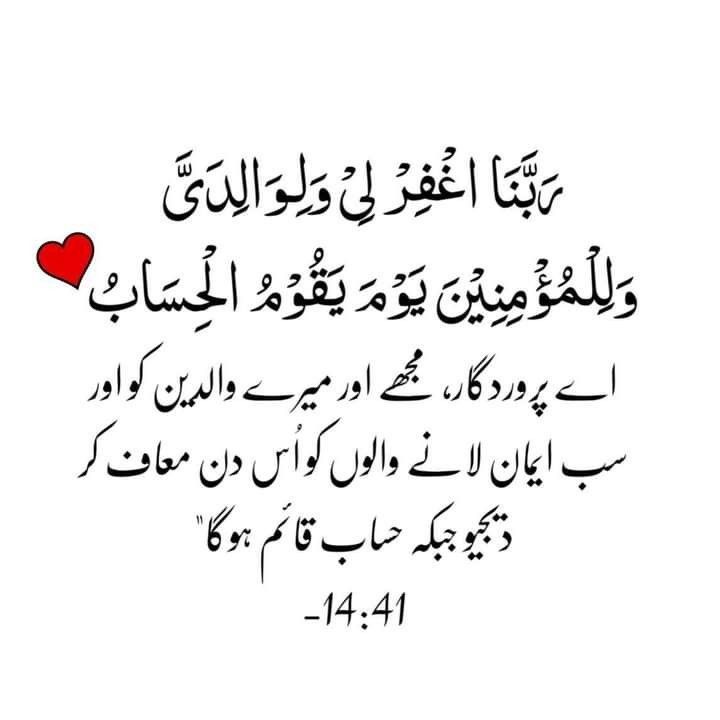 رَبَّنَا اغْفِرْ لِیْ وَلِوَالِدَیَّ
وَلِلْمُؤْمِنِیْنَ یَوْمَ یَقُوْمُ الْحِسَابُ
اے پروردگار، مجھے اور میرے والدین کو اور
سب ایمان لانے والوں کو اُس دن معاف کر
دیجیو جبکہ حساب قائم ہوگا"
14:41-